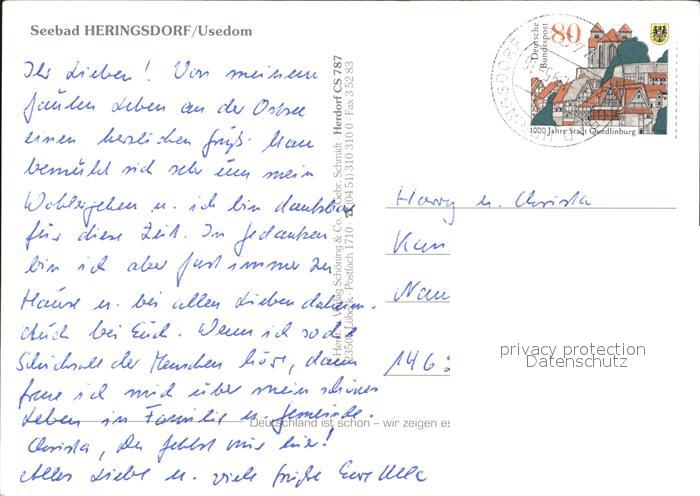 Seebad HERINGSDORF/Usedom
Ihr Lieben! Von meinem
faulen Leben an der Ostsee
einen herzlichen Gruß. Man
bemüht sich sehr um mein
Wohlergehen u. ich bin dankbar
für diese Zeit. In Gedanken
bin ich aber fast immer zu
Hause u. bei allen Lieben daheim.
Auch bei Euch. Wenn ich so die
Schicksale der Menschen höre, dann
freue ich mich über mein schönes
Leben in Familie u. Gemeinde.
Christa, Du fehlst mir hier!
Alles Liebe u. viele Grüße Eure Ulla
Deutschland ist schön – wir zeigen es
Verlag Schöning & Co. · Gebr. Schmidt · Herdorf CS 787
23505 Lübeck · Postfach 1710 · ☎ (04 51) 310 310 0 · Fax 3 52 83
Deutsche
Bundespost
80
1000 Jahre Stadt Quedlinburg
Harry u. Christa
Kan
Nau
1462
privacy protection
Datenschutz